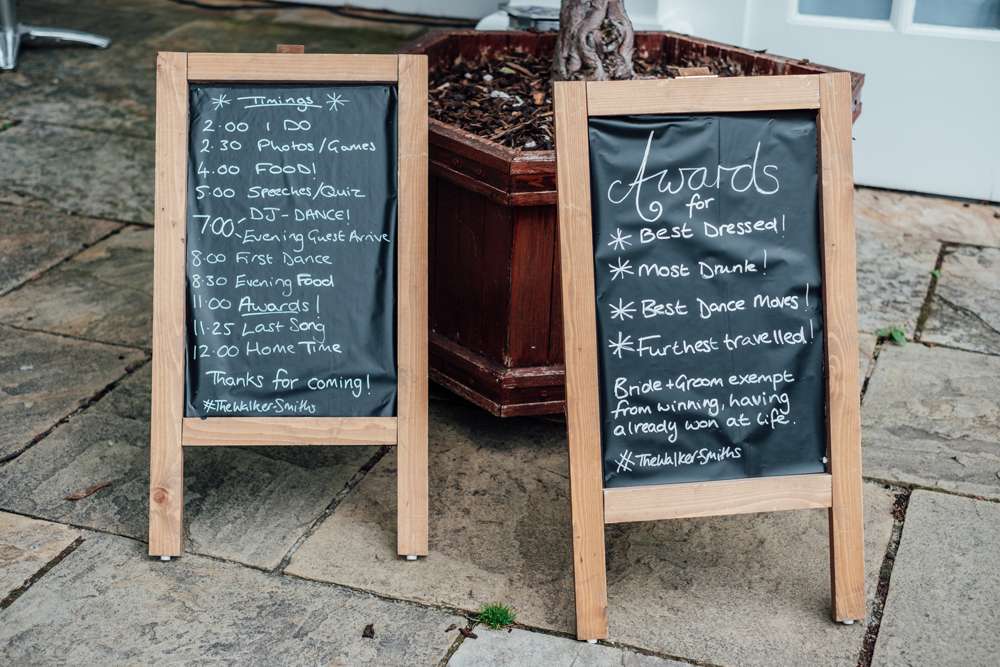 * Timings *
2.00 I DO
2.30 Photos/Games
4.00 FOOD!
5.00 Speeches/Quiz
7.00 - DJ - DANCE!
- Evening Guest Arrive
8.00 First Dance
8.30 Evening Food
11.00 Awards!
11.25 Last Song
12.00 Home Time
Thanks for coming!
#TheWalkerSmiths
Awards
for
* Best Dressed!
* Most Drunk!
* Best Dance Moves!
* Furthest travelled!
Bride + Groom exempt
from winning, having
already won at life.
#TheWalkerSmiths